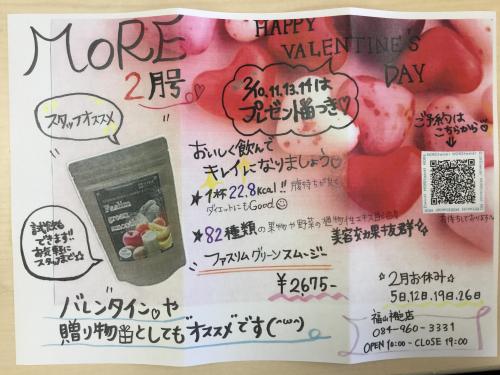 MoRE
2月号
HAPPY
VALENTINE'S
DAY
2/10,11,13,14は
プレゼント付き♡
スタッフオススメ
おいしく飲んで
キレイになりましょう♡
★1杯22.8Kcal!!腹持ちが良く
ダイエットにもGood☺
★82種類の果物や野菜の植物性エキス配合
美容効果抜群
ファスリムグリーンスムージー
¥2675-
Faslim
green
smoo
試飲も
できます!!
お気軽に
スタッフまで☆
ご予約は
こちらから♡
↓
☆2月お休み☆
5日,12日,19日,26日
福山神辺店
084-960-3331
OPEN 10:00-CLOSE 19:00
バレンタイン♡や
贈り物としてもオススメです(^ω^)